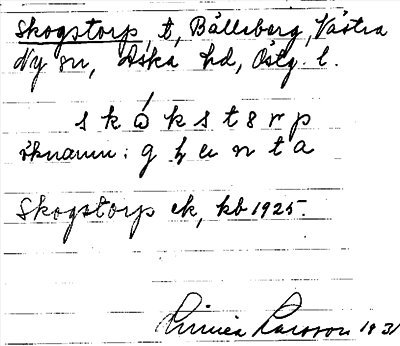 Skogstorp, t, Bålleberg, Västra
Ny sn, Aska hd, Östg. l.
s k ó k s t 8 r p
öknamn: g
Skogstorp ek, kb 1925.
Linnea Larsson 1931